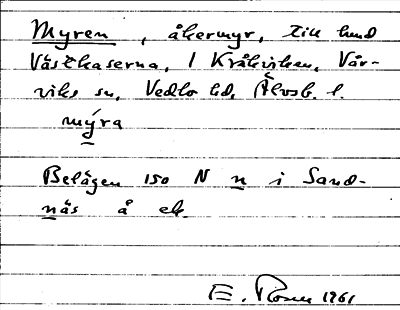 Myren, åkermyr, till hmd
Västkaserna, 1 Kråkviken, Vår-
viks sn, Vedbo hd, Älvsb. l.
mýra
Belägen 150 N n i Sand-
näs å ek.
E. Rosen 1961